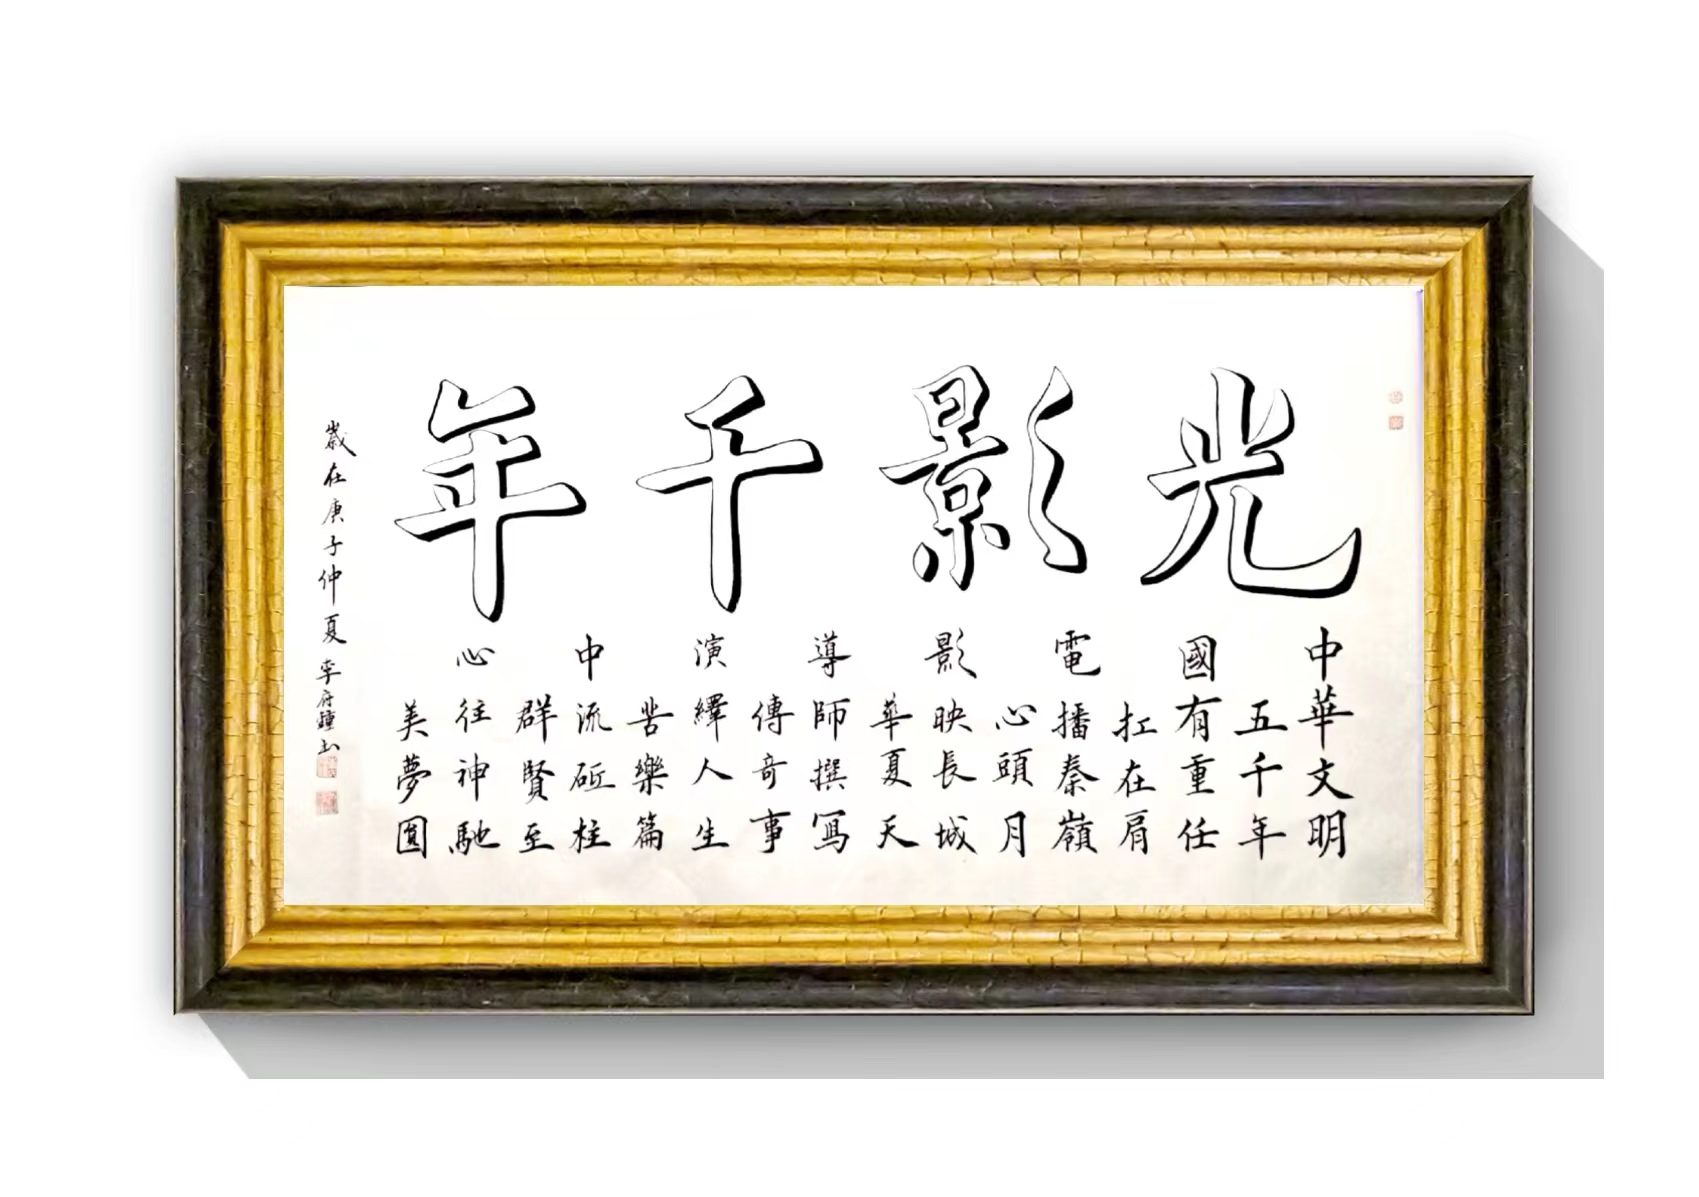 光影千年
中華文明
五千年
國有重任
扛在肩
電播秦嶺
心頭月
影映長城
華夏天
導師撰寫
傳奇事
演繹人生
苦樂篇
中流砥柱
群賢至
心往神馳
美夢圓
歲在庚子仲夏李府书